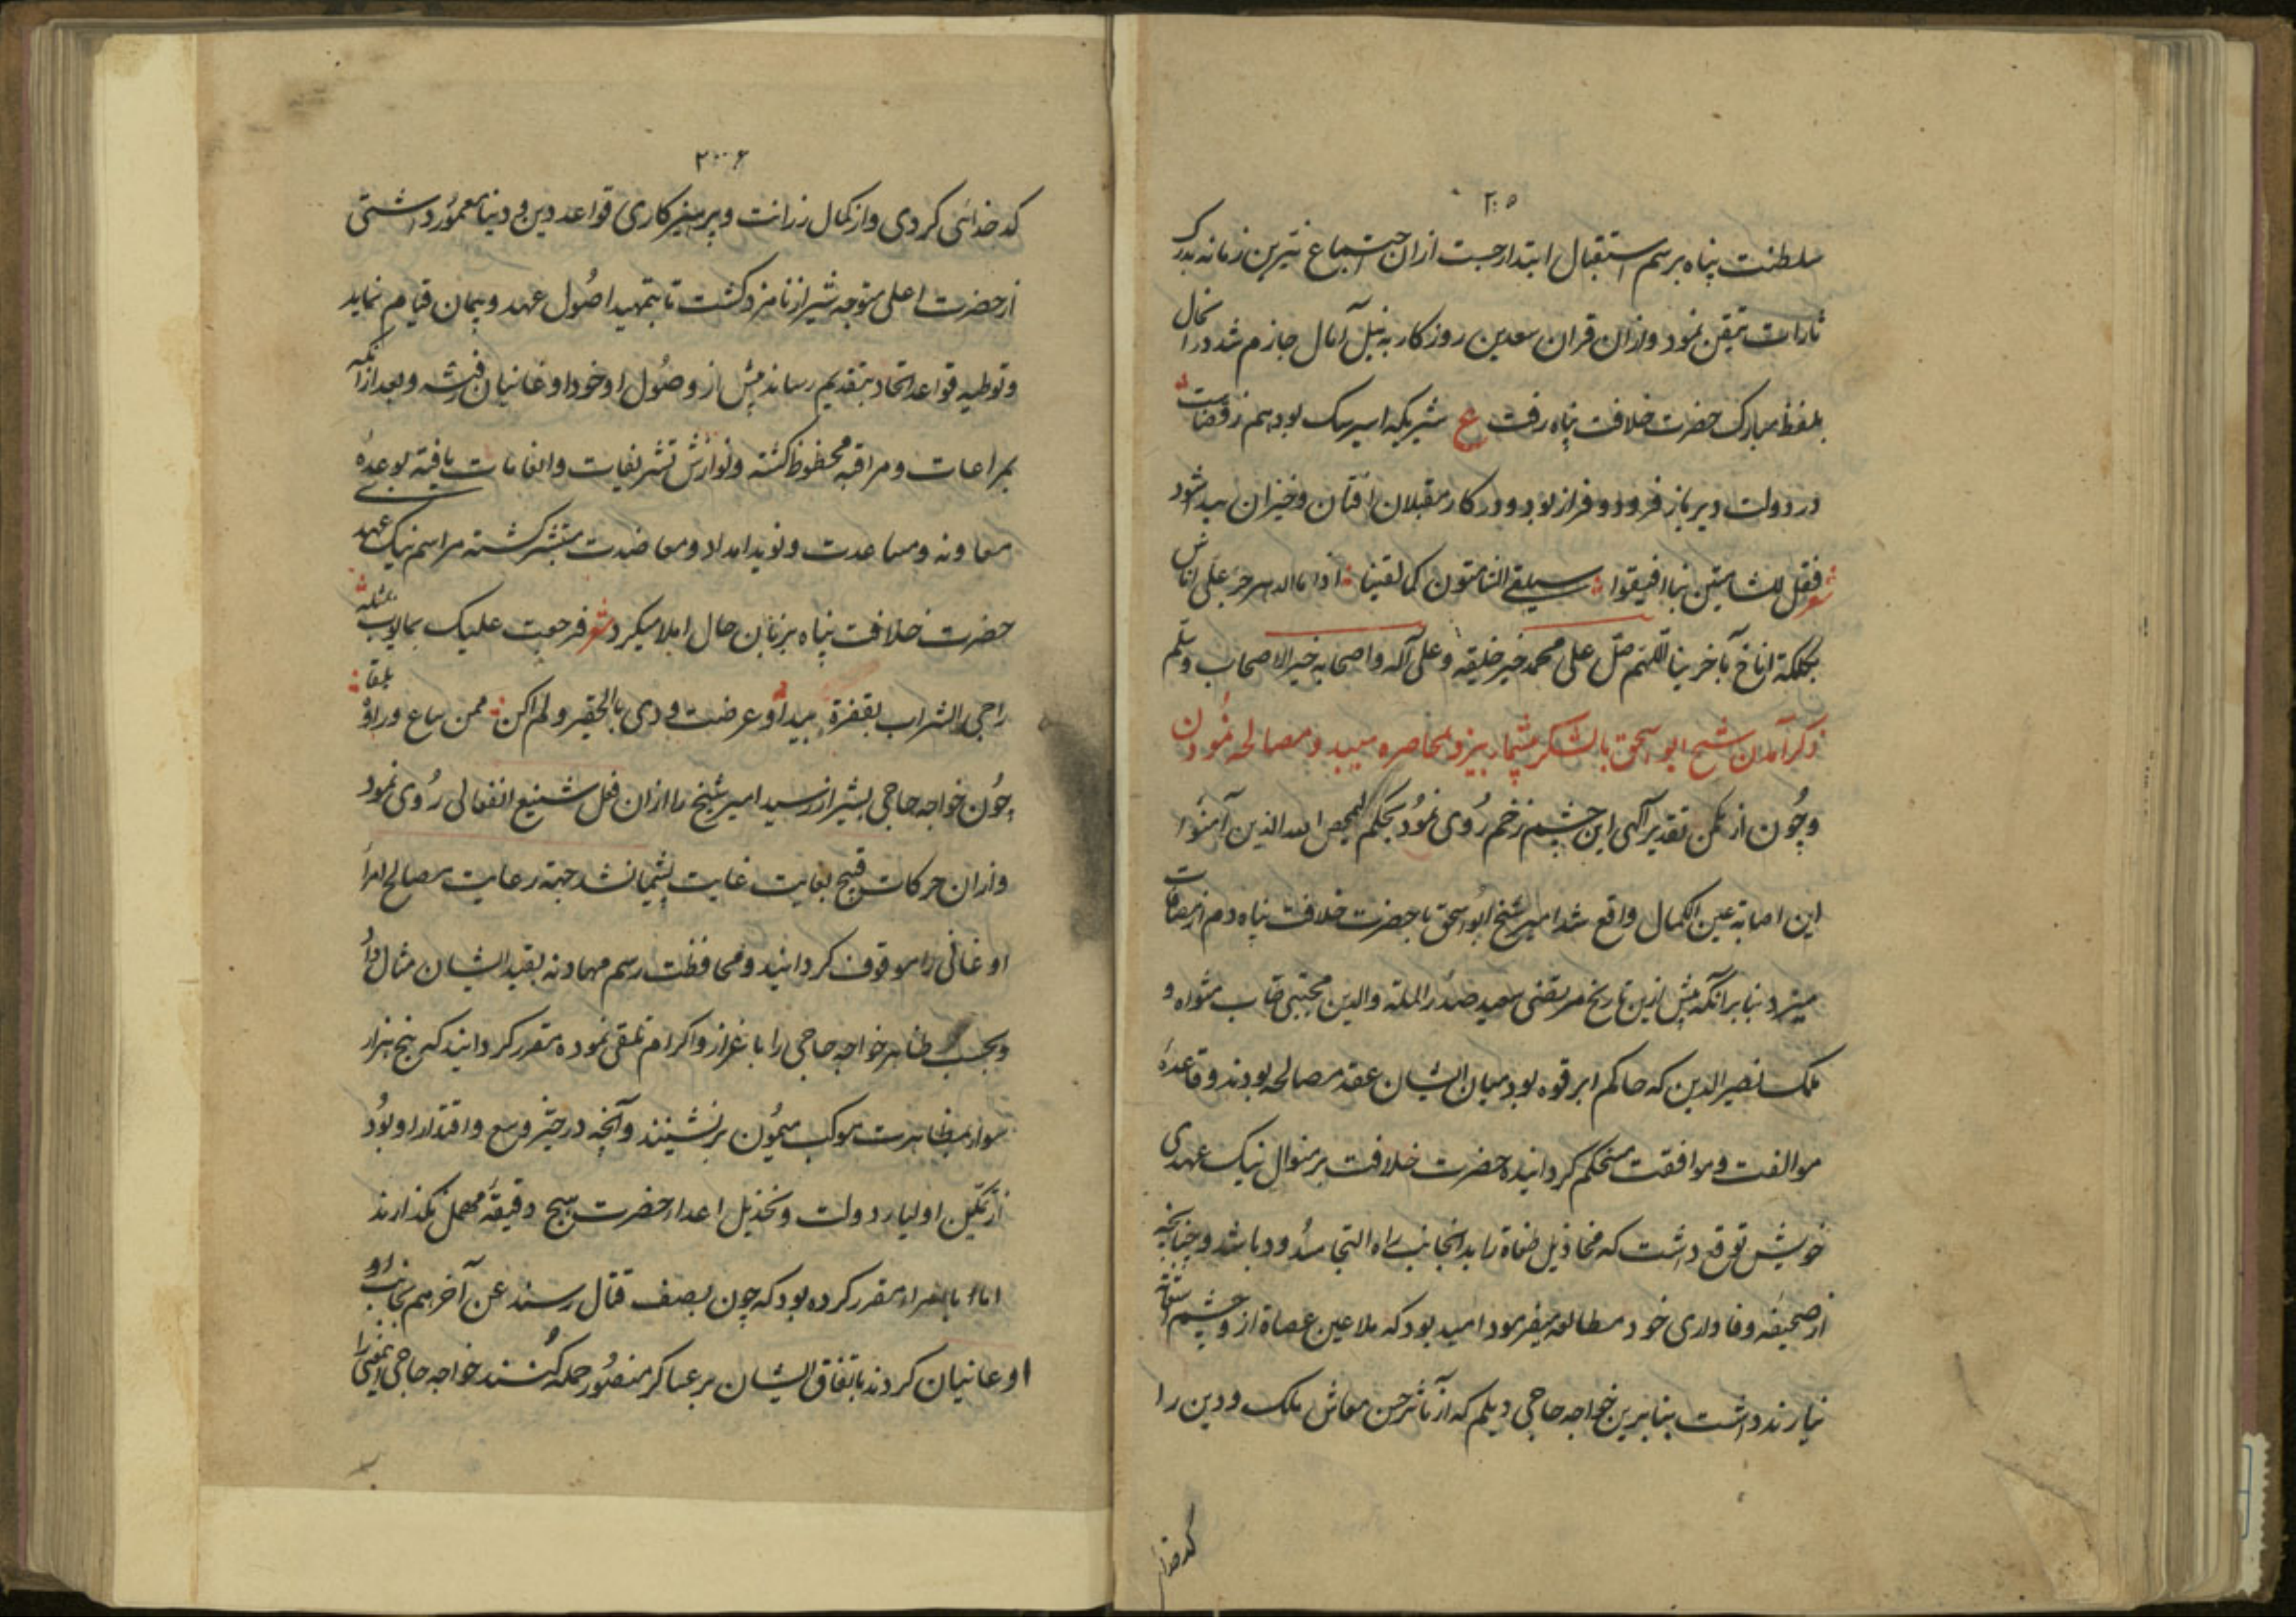 ۲۰۵
سلطنت پناه برسم استقبال ابتدار جست از ان اجتماع نیرین زمانه بدرک
ثارات متیقن نمود و ازان قران سعدین روزکار به نیل آمال جازم شد در انحال
بلفظ مبارک حضرت خلافت پناه رفت ع شیریکه اسیر سک بود هم ز قضاست
در دولت دیریاز فرود و فراز بود و در کار مقبلان افتان و خیزان پیدا شود
شعر فقل للشامتین بنا افیقوا سیلقی الشامتون کما لقینا اذا ما الدهر جر علی اناس
بکلکله اناخ بآخرینا اللهم صل علی محمد خیر خلیقه و علی آله و اصحابه خیر الاصحاب و سلم
ذکر آمدن شیخ ابو اسحق با لشکر بیشمار بیزد و محاصره میبد و مصالحه نمودن
و چون از مکمن تقدیر آلهی این چشم زخم روی نمود بحکم لیمحص الله الذین آمنوا
این اصابة عین الکمال واقع شد امیر شیخ ابو اسحق با حضرت خلافت پناه دم از مصافات
میزد بنا برانکه پیش ازین تاریخ مرتضی سعید صدر الملة والدین مجتبی طاب مثواه و
ملک نصیر الدین که حاکم ابرقوه بود میان ایشان عقد مصالحه بودند و قاعدهٔ
موالفت و موافقت مستحکم کردانیده حضرت خلافت بر منوال نیک عهدی
خویش توقع داشت که مخاذیل طغاة را بدانجانب راه التجا مسدود باشد و چنانچه
از صحیفه وفاداری خود مطالعه میفرمود امید بود که ملاعین عصاة ازو چشم
نیارند داشت بنابرین خواجه حاجی دیلم که از مآثر حسن معاش ملک و دین را
کدخدا
۲۰۶
کدخدائی کردی و از کمال رزانت و پرهیزکاری قواعد دین و دنیا معمور داشتی
از حضرت اعلی متوجه شیراز نامزد کشت تا بتمهید اصول عهد و پیمان قیام نماید
و توطیه قواعد اتحاد بتقدیم رساند پیش از وصول او خود اوغانیان رفته و بعد ازآنکه
بمراعات و مراقبه محظوظ کشته و نوازش تشریفات و انعامات یافته بوعدهٔ
معاونه و مساعدت و نوید امداد و معاضدت مستبشر کشته مراسم نیک عهد
حضرت خلافت پناه بزبان حال املا میکرد شعر فرجعت علیک بما یوب بمثله
راجی الشراب بقفرة بیداء و عرضت ودی بالحقیر و لم اکن ممن یباع وداده بلقاء
چون خواجه حاجی بشیراز رسید امیر شیخ را ازان فعل شنیع انفعالی روی نمود
و ازان حرکات قبیح بغایت غایت پشیمان شد جهة رعایت مصالح امراء
اوغانی را موقوف کردانید و محافظت رسم مهادنه بقید ایشان مثال داد
و بحسب ظاهر خواجه حاجی را با عزاز و اکرام تلقی نموده مقرر کردانید که پنج هزار
سوار بمظاهرت موکب میمون برنشینند و آنچه در حیز وسع و اقتدار او بود
از تمکین اولیاء دولت و تخذیل اعداء حضرت هیچ دقیقه مهمل نکذارند
اما با امراء مقرر کرده بود که چون بصف قتال رسند عن آخرهم بجانب او
اوغانیان کردند باتفاق ایشان بر عساکر منصور حمله کنند خواجه حاجی